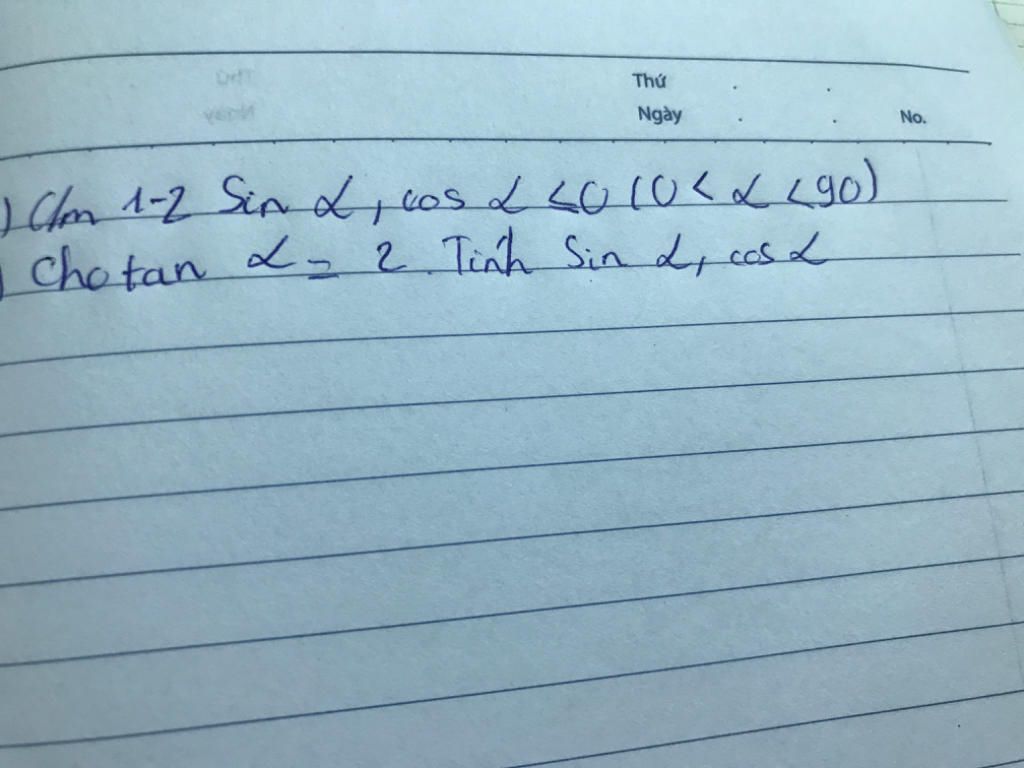 Thứ
Ngày
No.
) C/m 1-2 Sin α, cos α ≤0 (0 < α < 90)
) Cho tan α = 2. Tính Sin α, cos α